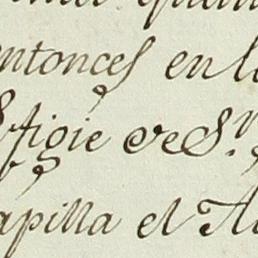 entonces en l
Efigie de S.n
apilla el A